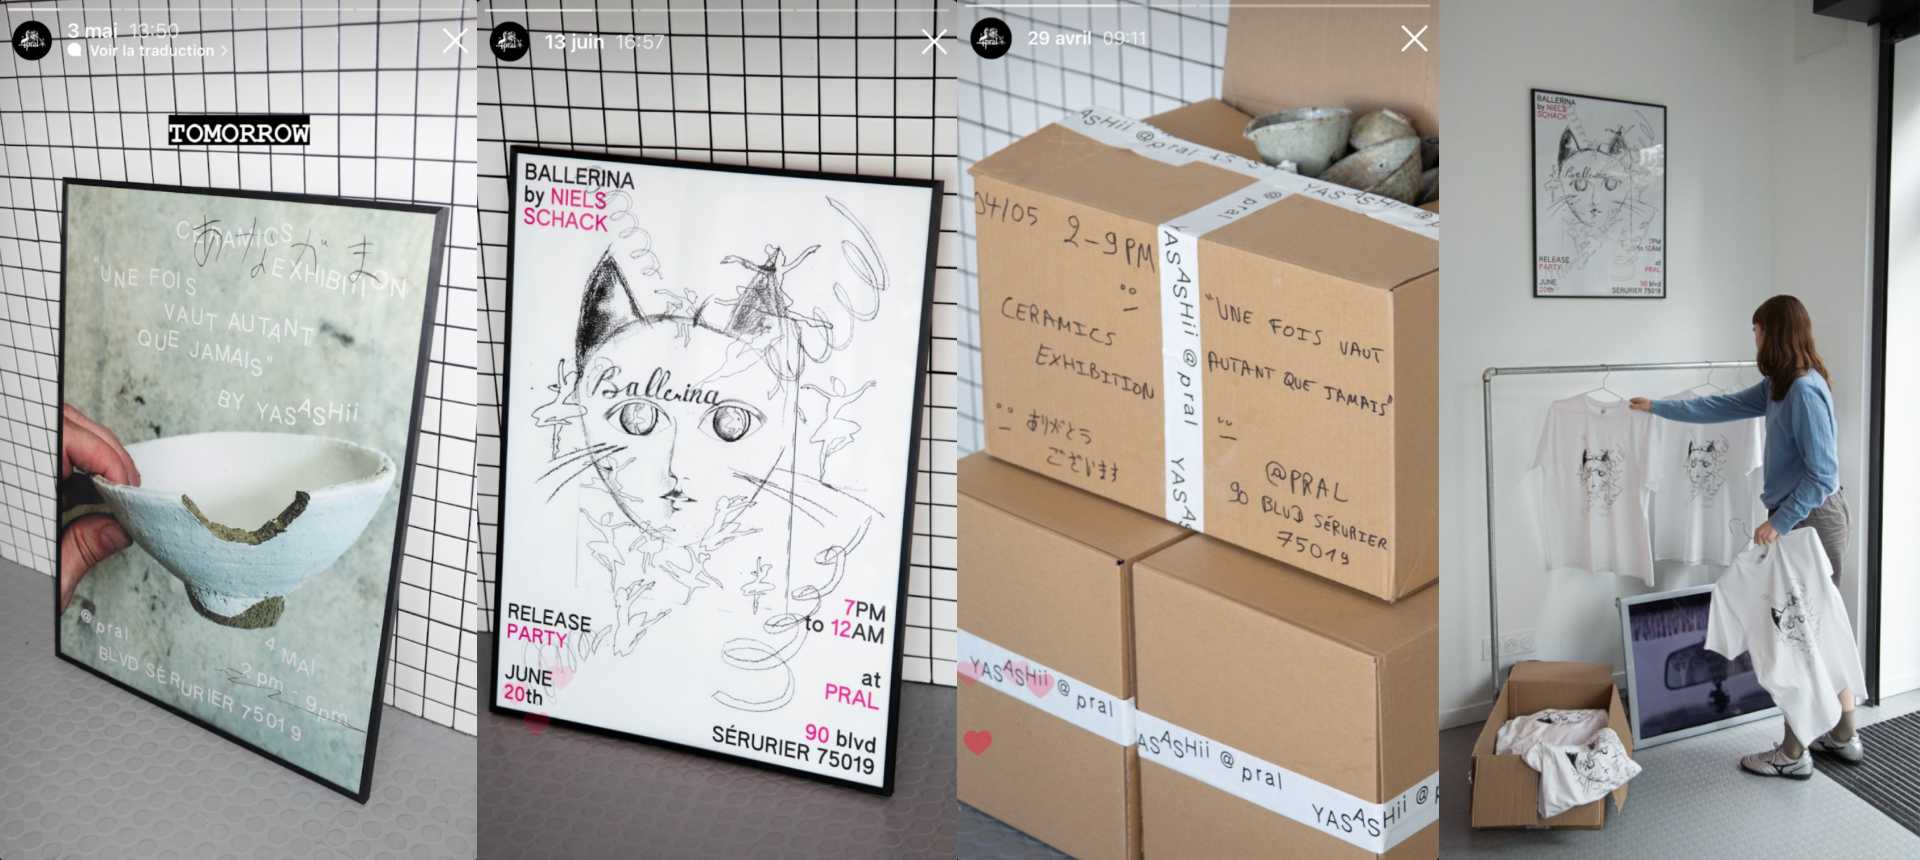 3 mai 13:50
Voir la traduction >
TOMORROW
あなたがま
CERAMICS
EXHIBITION
"UNE FOIS
VAUT AUTANT
QUE JAMAIS"
BY YASASHii
@ pral
4 MAI
2 pm - 9pm
BLVD SÉRURIER 75019
pral
13 juin 16:57
BALLERINA
by NIELS
SCHACK
Ballerina
RELEASE
PARTY
JUNE
20th
7PM
to 12AM
at
PRAL
90 blvd
SÉRURIER 75019
pral
29 avril 09:11
ASHii @ pral YAS
YASASHii @ p
@ pral
04/05 2-9PM
CERAMICS
EXHIBITION
ありがとう
ございます
YASASHii @ pral YASAS
"UNE FOIS VAUT
AUTANT QUE JAMAIS"
@PRAL
90 BLVD SÉRURIER
75019
YASASHii @ pral
ASASHii @ pral
YASASHii @ p
BALLERINA
by NIELS
SCHACK
Ballerina
RELEASE
PARTY
JUNE
20th
7PM
to 12AM
at
PRAL
90 blvd
SÉRURIER 75019